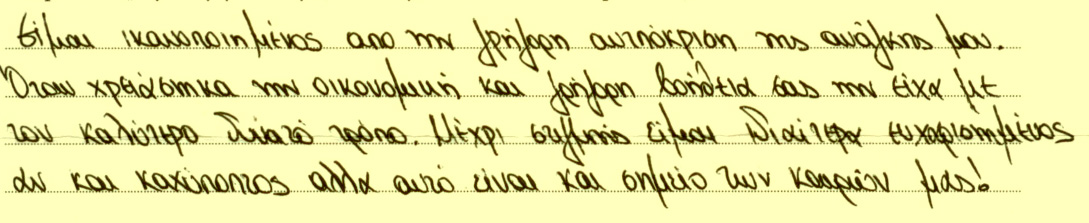 Είμαι ικανοποιημένος απο την γρήγορη ανταπόκριση της ανάγκης μου.
Όταν χρειάστηκα την οικονομική και γρήγορη βοήθεια σας την είχα με
τον καλύτερο δυνατό τρόπο. Μέχρι στιγμής είμαι ιδιαίτερα ευχαριστημένος
αν και καχύποπτος αλλα αυτό είναι και σημείο των καιρών μας!